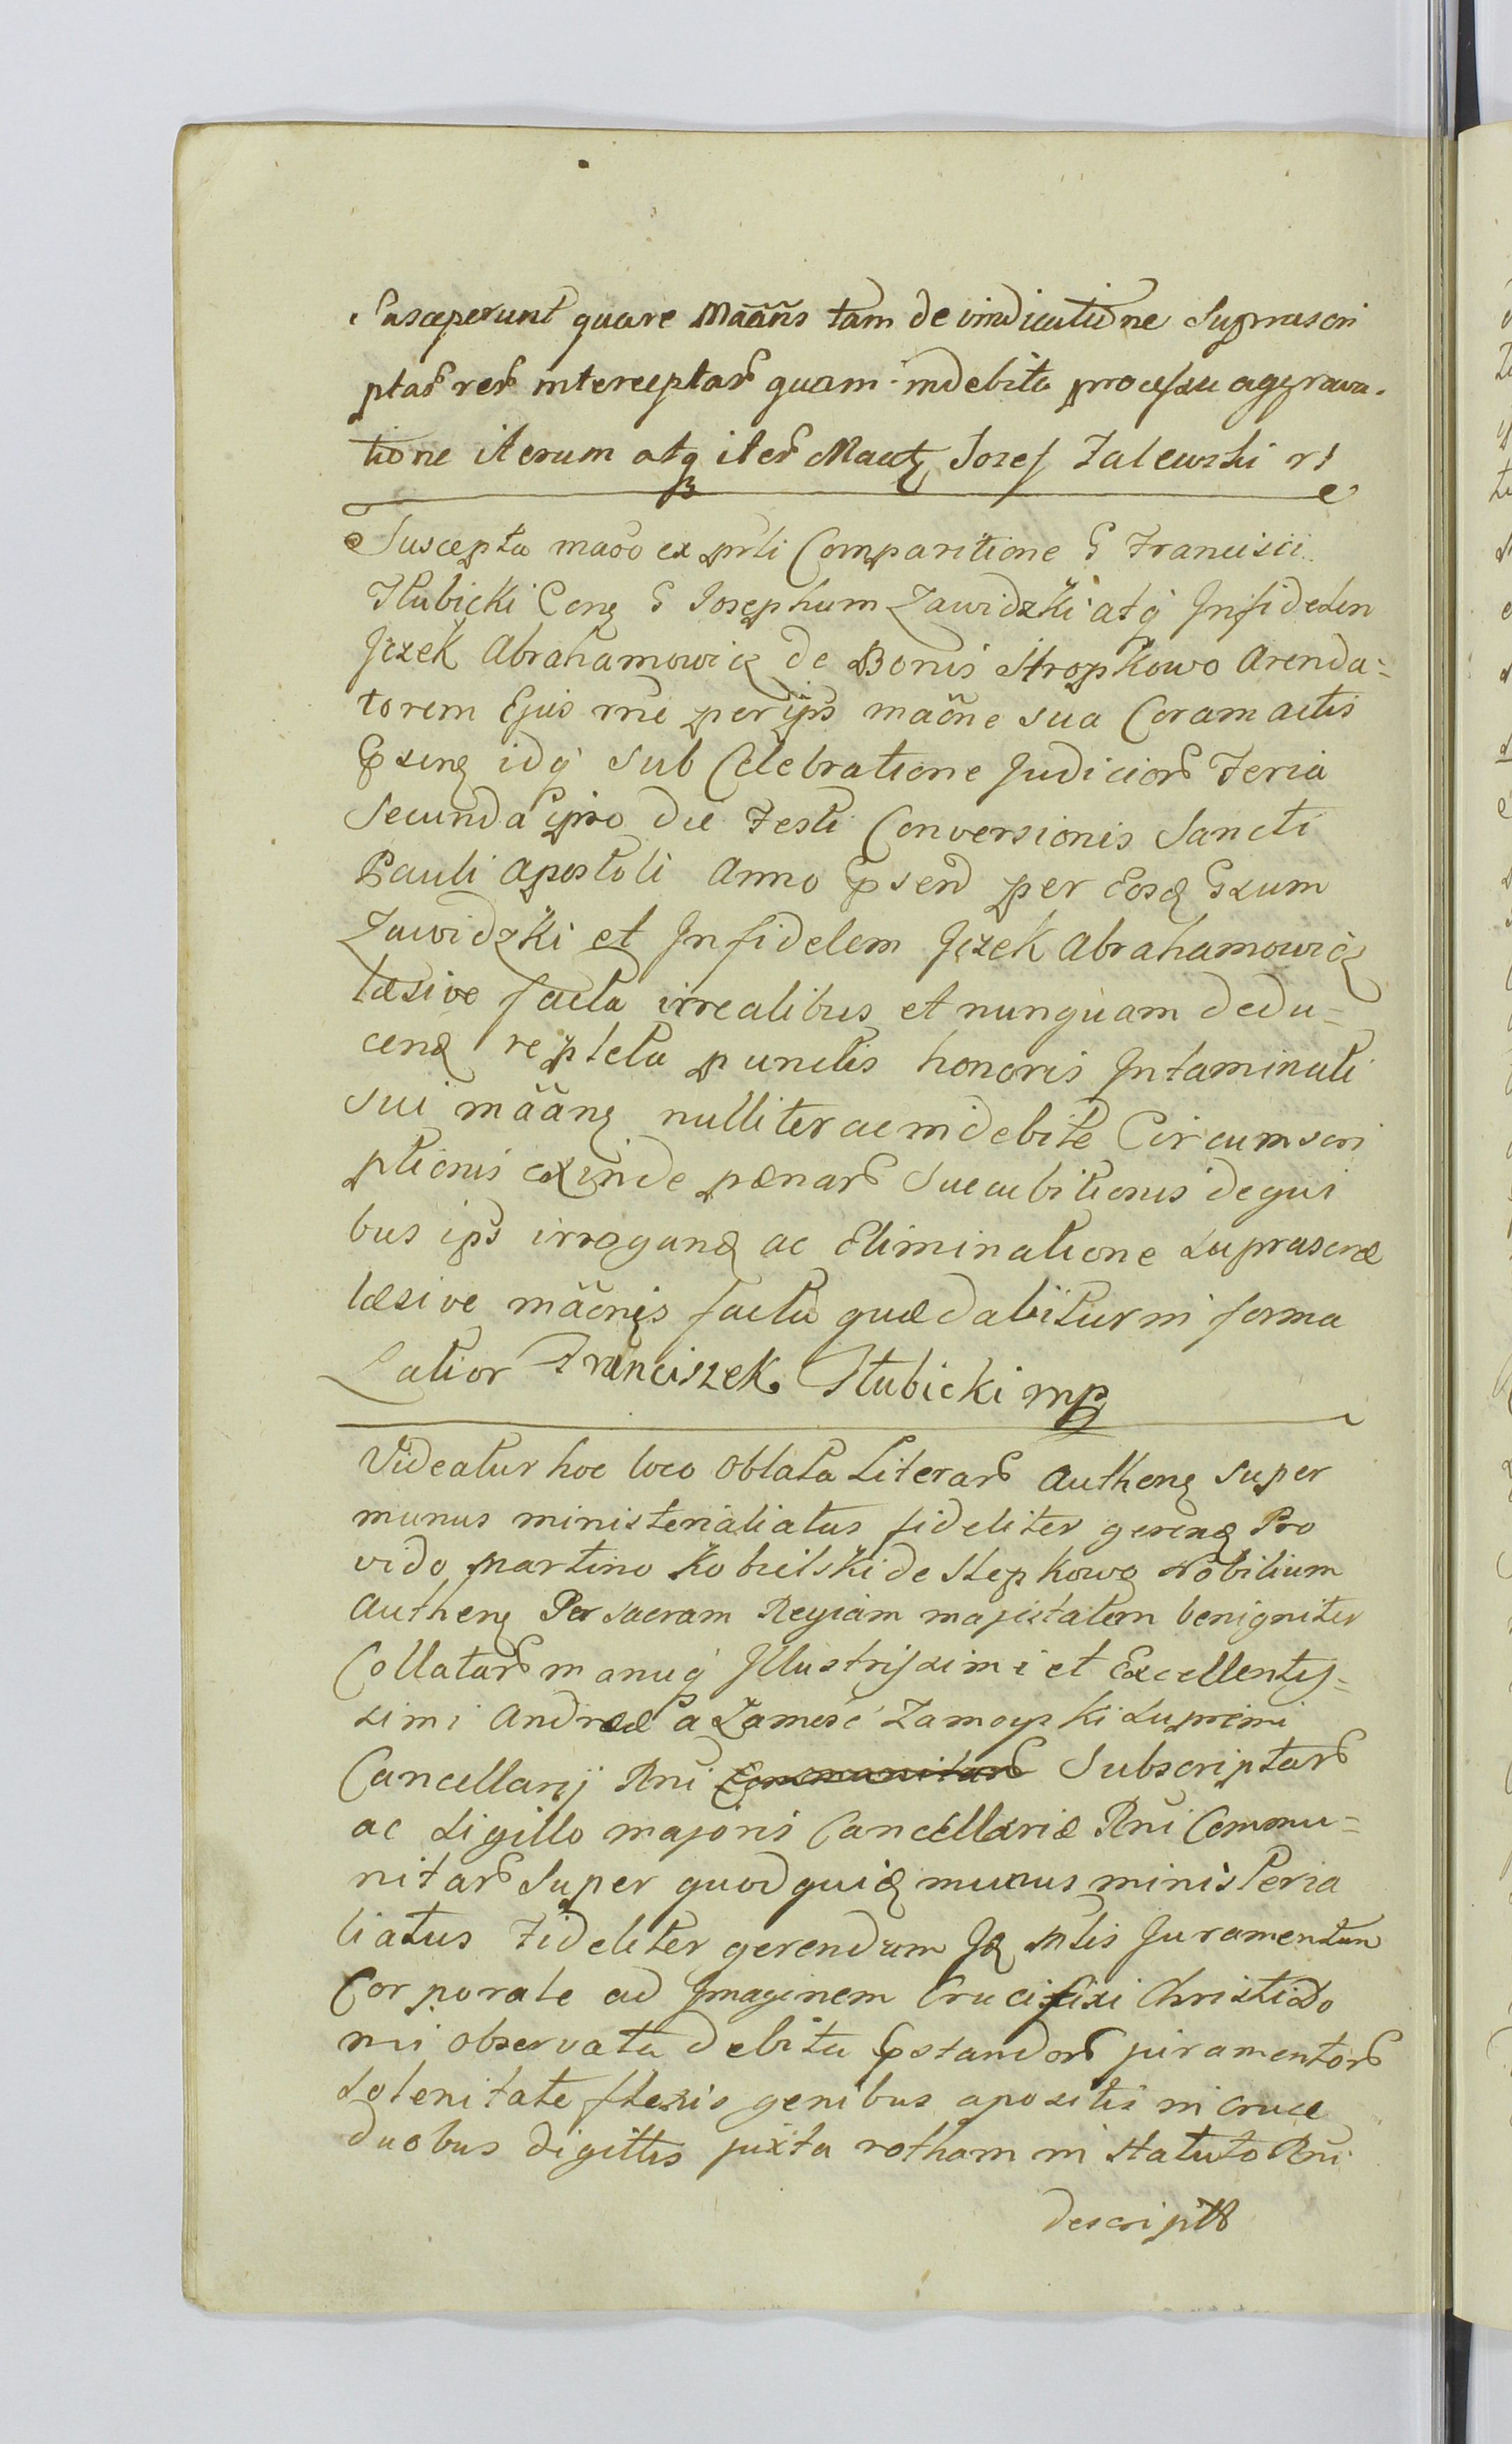 Susceperunt quare Mããns tam de vindicatione Suprascri
ptar rer interceptar quam indebita processu aggrava-
tione iterum atq iter Maatz Josef Zalewski
Suscepta mãoo ex prli Comparitione G Francisci
Hłubicki Conz G Josephum Zawidzki atq Infidelem
Jczek Abrahamowicz de Bonis Stropkowo Arenda=
torem Ejus rne per ips mãone sua Coram actis
idq sub Celebratione Judicior Feria
Secunda ipso die Festi Conversionis Sancti
Pauli Apostoli Anno per Eosd Gsum
Zawidzki et Infidelem Jczek Abrahamowicz
læsive facta irrealibus et nunquam dedu=
cend repleta punctis honoris Intaminati
sui mããnz nulliter ac indebite Circumscri
ptionis exinde pænar Succubitionis de qui
bus ips irrogand ac Eliminatione suprascræ
læsive mãonis facta quæ dabitur in forma
Latior Franciszek Hłubicki mp
Videatur hoc loco Oblata Literar Authenz super
munus ministerialiatus fideliter gerend Pro
vido Martino Kobielski de Stepkowo Nobilium
Authenz Per Sacram Regiam majestatem benigniter
Collatar manuq Illustrissimi et Excellentis=
simi Andreæ a Zamość Zamoyski supremi
Cancellarij Rni Communitar Subscriptar
ac sigillo majoris Cancellariæ Rni Commu=
nitar Super quod quid munus ministeria
liatus Fideliter gerendum Id mlis Juramentum
Corporale ad Imaginem Crucifixi Christi Do
mi observata debita pstandor juramentor
solenitate flexis genibus apositis in cruce
duobus digittis juxta rotham in statuto Rni
descript